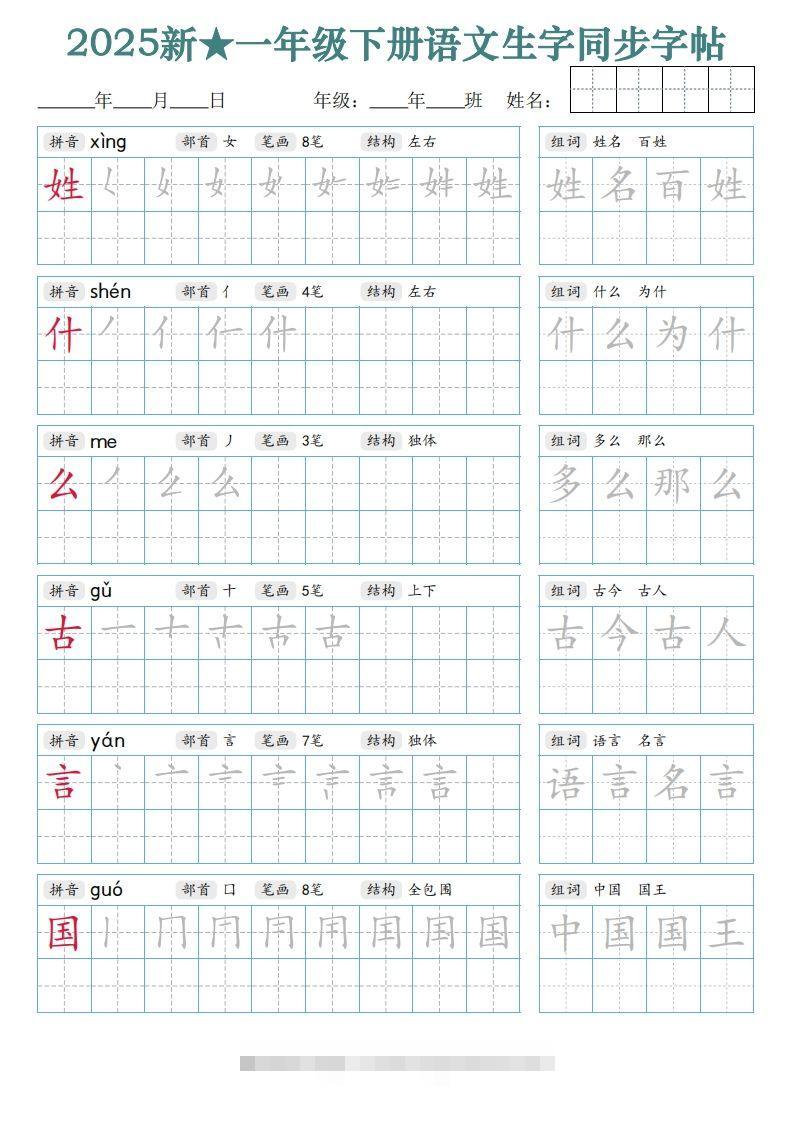 2025新★一年级下册语文生字同步字帖
______年____月____日 年级：____年____班 姓名：
拼音 xìng 部首 女 笔画 8笔 结构 左右 组词 姓名 百姓
姓 姓 姓 名 百 姓
拼音 shén 部首 亻 笔画 4笔 结构 左右 组词 什么 为什
什 丿 亻 什 什 么 为 什
拼音 me 部首 丿 笔画 3笔 结构 独体 组词 多么 那么
么 丿 么 多 么 那 么
拼音 gǔ 部首 十 笔画 5笔 结构 上下 组词 古今 古人
古 一 十 古 古 今 古 人
拼音 yán 部首 言 笔画 7笔 结构 独体 组词 语言 名言
言 丶 亠 言 语 言 名 言
拼音 guó 部首 囗 笔画 8笔 结构 全包围 组词 中国 国王
国 丨 冂 国 中 国 国 王